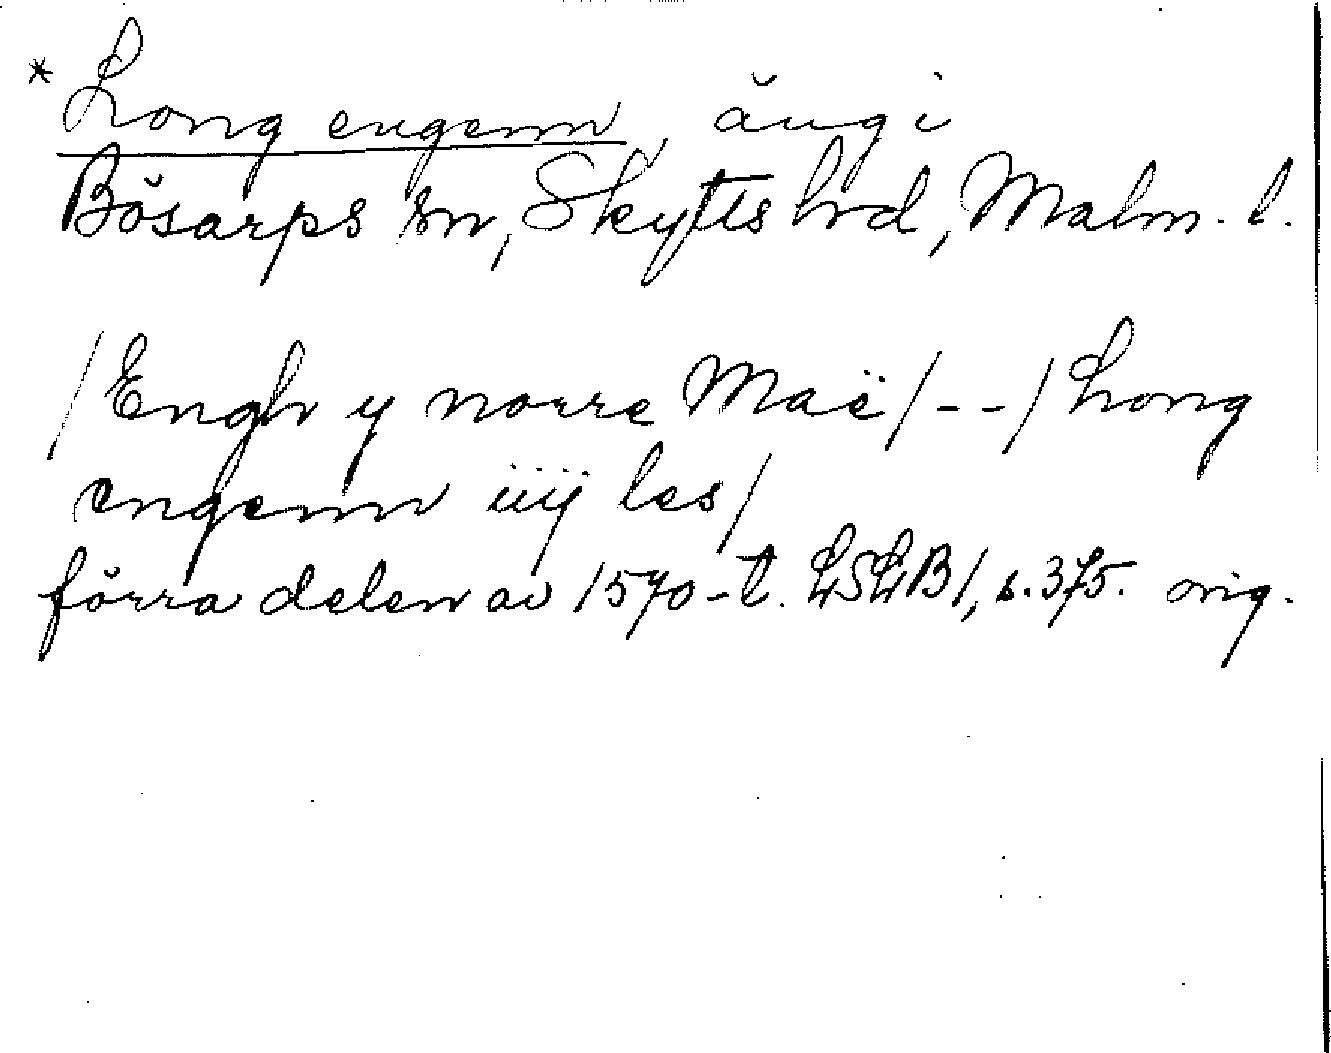 * Long engenn, äng i
Bösarps sn, Skytts hrd, Malm. l.
/Engh y norre Maë/--/Long
engenn iiij les/
förra delen av 1570-t. LSLB1, s. 375. orig.